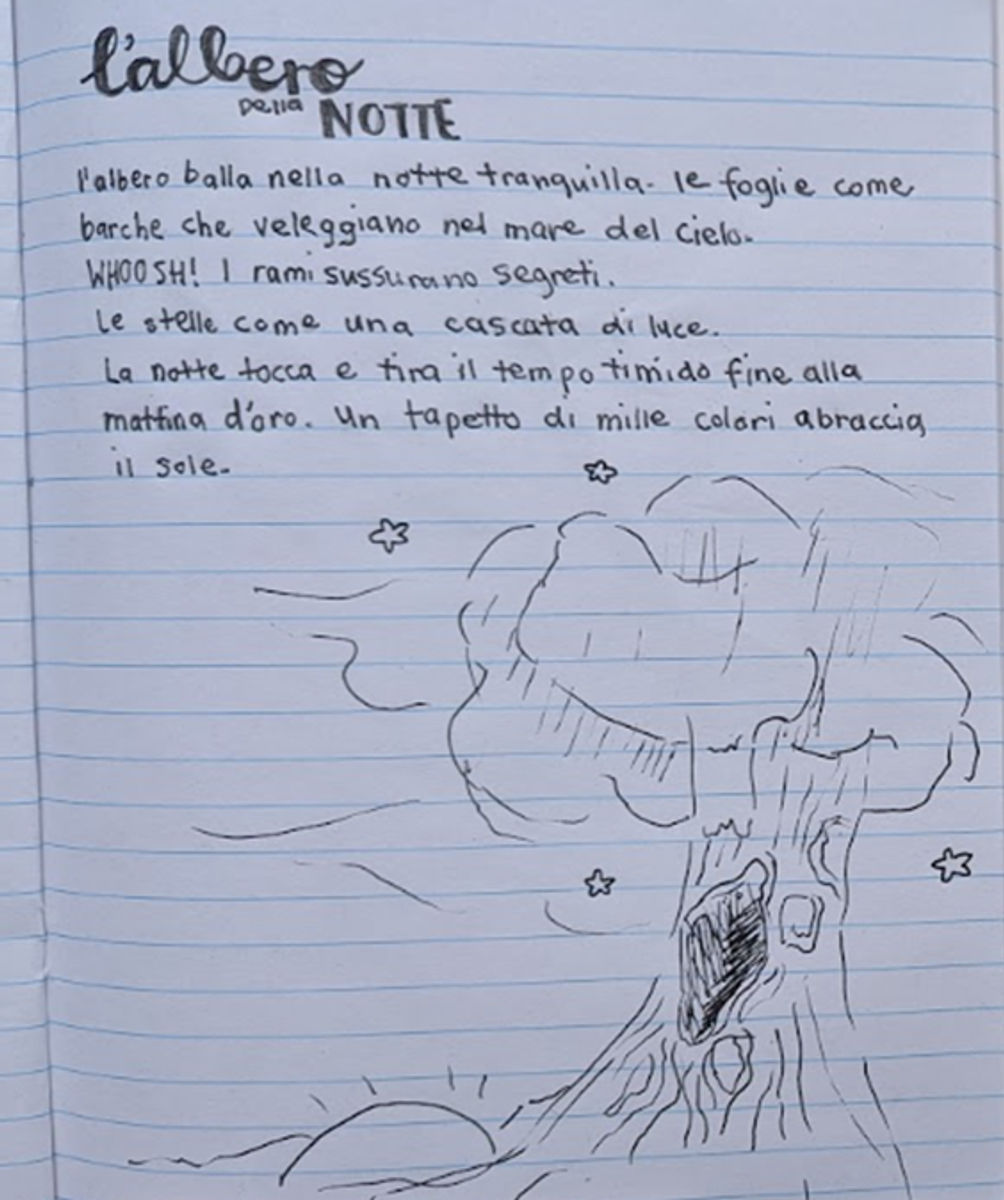 l'albero
della
NOTTE
l'albero balla nella notte tranquilla. le foglie come
barche che veleggiano nel mare del cielo.
WHOOSH! I rami sussurano segreti.
Le stelle come una cascata di luce.
La notte tocca e tira il tempo timido fine alla
mattina d'oro. un tapetto di mille colori abraccia
il sole.